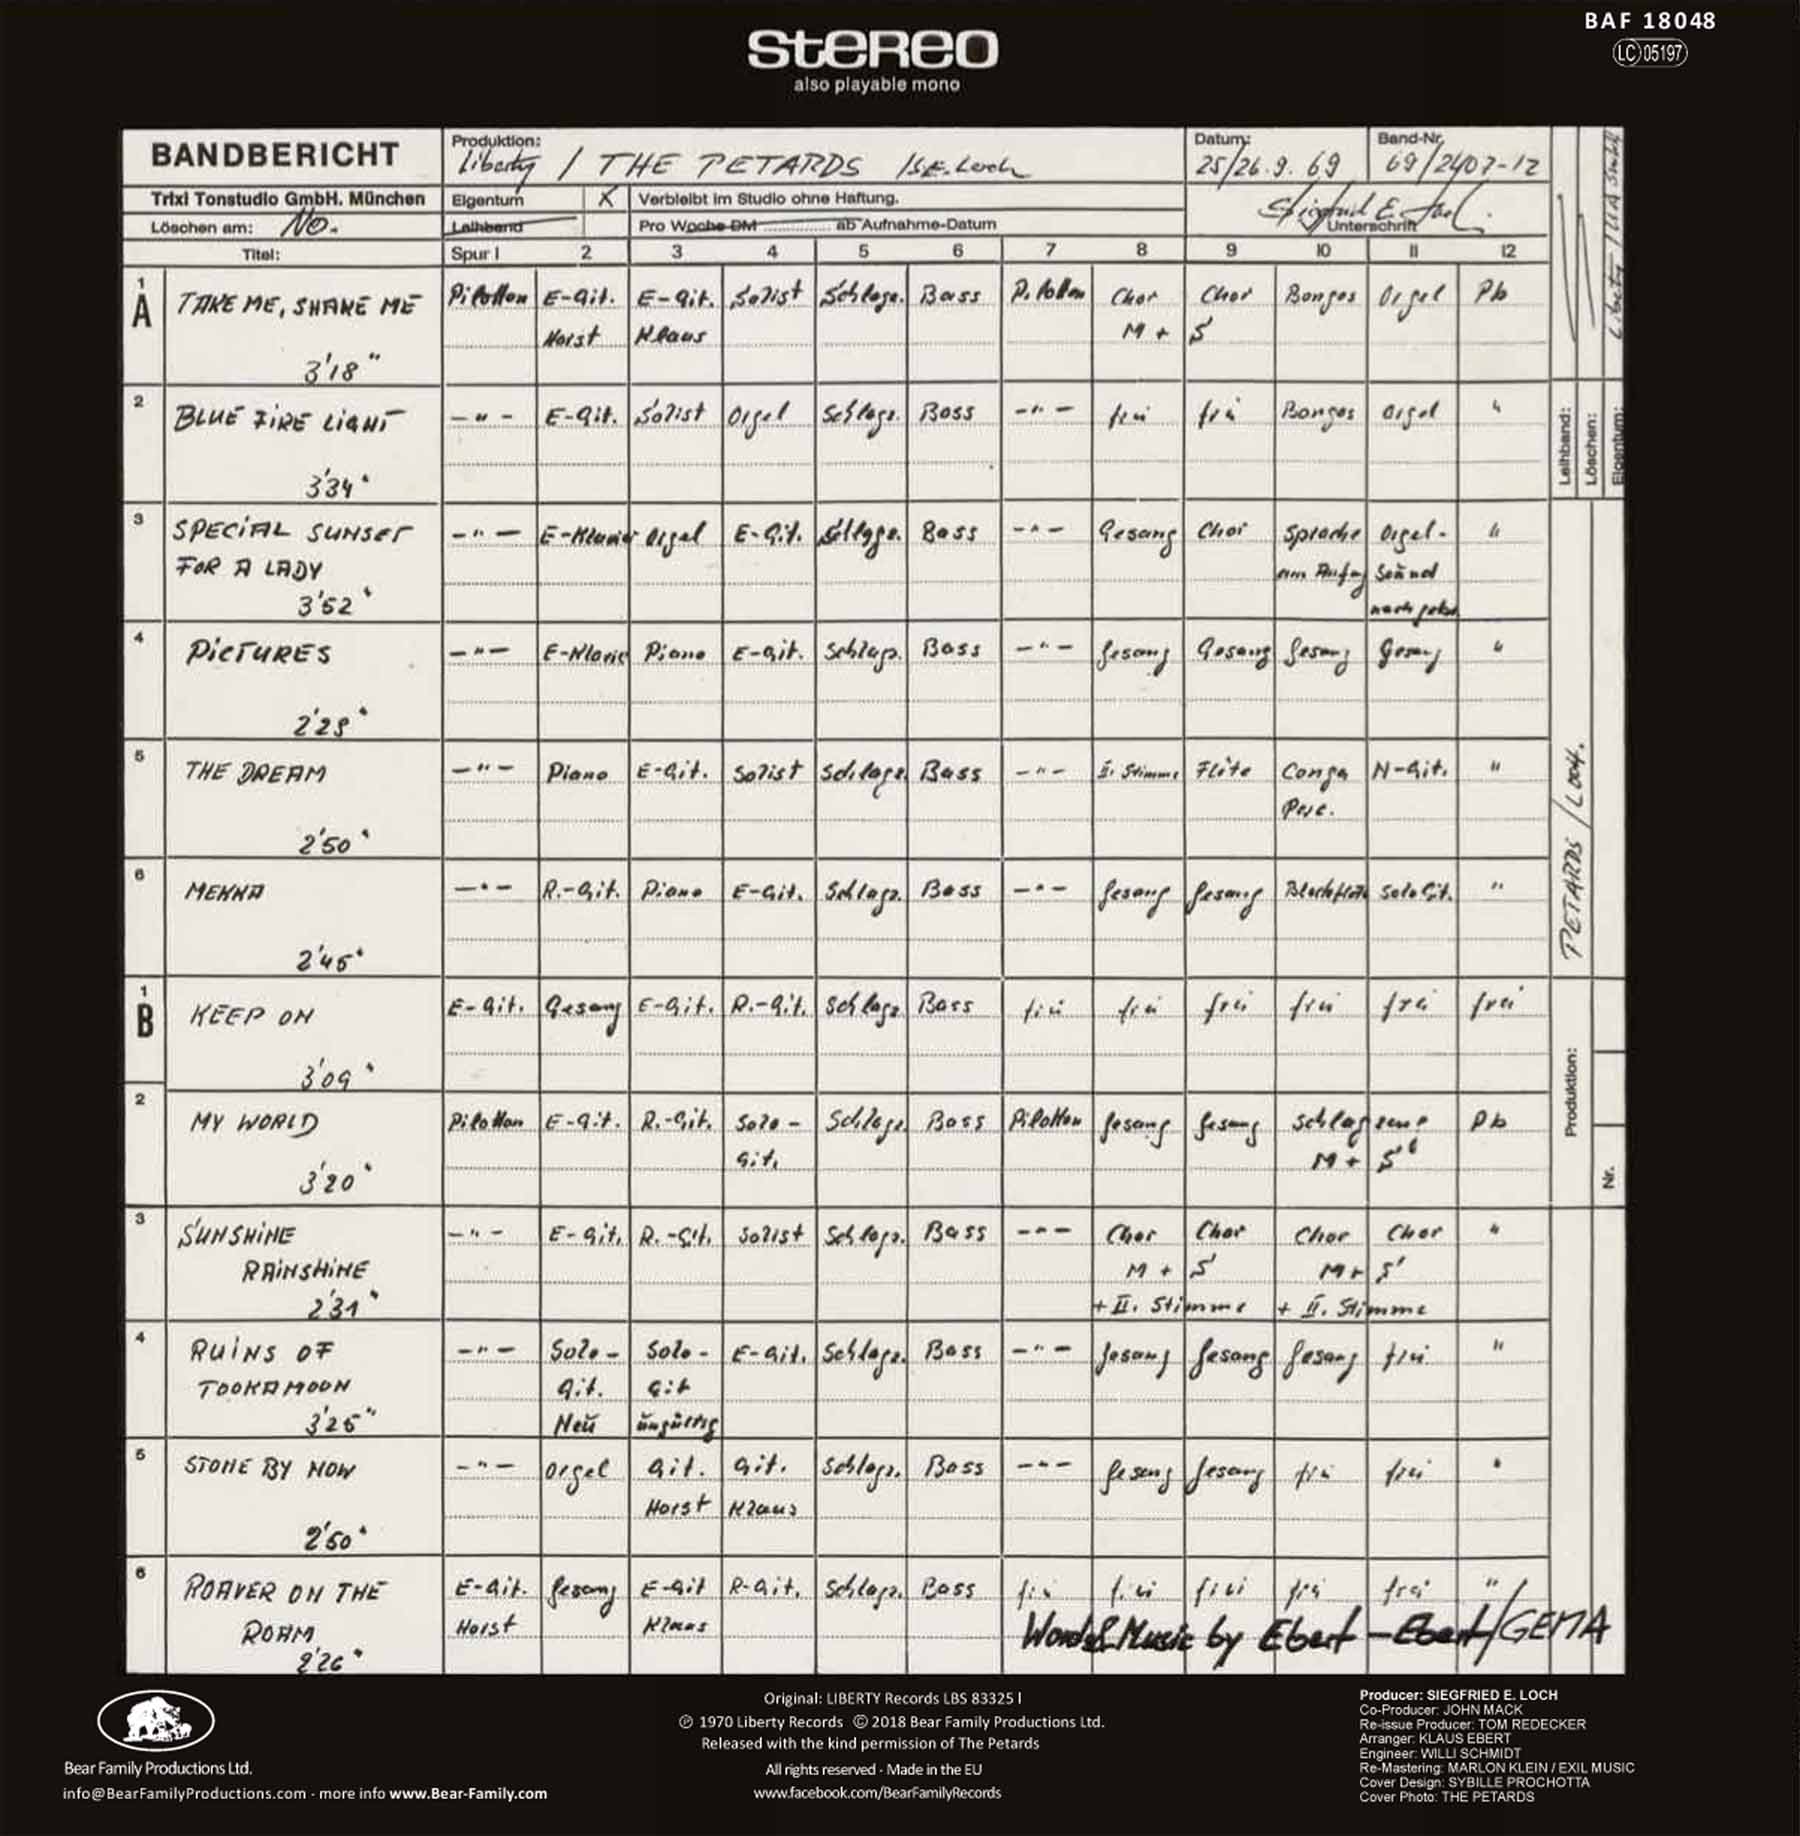 BAF 18048
LC 05197
STEREO
also playable mono
BANDBERICHT
Produktion:
Liberty / THE PETARDS / S.E. Loch
Datum:
25/26.9.69
Band-Nr.
69/2407-12
Trixi Tonstudio GmbH. München
Eigentum X Verbleibt im Studio ohne Haftung.
Löschen am: No.
Leihband
Pro Woche DM ab Aufnahme-Datum
Unterschrift
Titel: Spur I 2 3 4 5 6 7 8 9 10 11 12
A
1 TAKE ME, SHAKE ME Pilotton E-Git. E-Git. Solist Schlagz. Bass Pilotton Chor Chor Bongos Orgel Pb
Horst Klaus M + S
3'18"
2 BLUE FIRE LIGHT —"— E-Git. Solist Orgel Schlagz. Bass —"— frei frei Bongos Orgel "
3'34"
3 SPECIAL SUNSET —"— E-Klavier Orgel E-Git. Schlagz. Bass —"— Gesang Chor Sprache Orgel- "
FOR A LADY am Anfang Sound
3'52"
4 PICTURES —"— E-Klavier Piano E-Git. Schlagz. Bass —"— Gesang Gesang Gesang Gesang "
2'28"
5 THE DREAM —"— Piano E-Git. Solist Schlagz. Bass —"— II. Stimme Flöte Conga N-Git. "
Perc.
2'50"
6 MEKKA —"— R.-Git. Piano E-Git. Schlagz. Bass —"— Gesang Gesang Blockflöte Solo Git. "
2'45"
B
1 KEEP ON E-Git. Gesang E-Git. R.-Git. Schlagz. Bass frei frei frei frei frei frei
3'09"
2 MY WORLD Pilotton E-Git. R.-Git. Solo- Schlagz. Bass Pilotton Gesang Gesang Schlagzeug Pb
Git. M + S
3'20"
3 SUNSHINE —"— E-Git. R.-Git. Solist Schlagz. Bass —"— Chor Chor Chor Chor "
RAINSHINE M + S M + S
2'31" + II. Stimme + II. Stimme
4 RUINS OF —"— Solo- Solo- E-Git. Schlagz. Bass —"— Gesang Gesang Gesang frei "
TOOKAMOON Git. Git
3'25" Neu ungültig
5 STONE BY NOW —"— Orgel Git. Git. Schlagz. Bass —"— Gesang Gesang frei frei "
Horst Klaus
2'50"
6 ROAVER ON THE E-Git. Gesang E-Git R-Git. Schlagz. Bass frei frei frei frei frei "
ROAM Horst Klaus
2'26"
Words & Music by Ebert - Ebert/GEMA
Leihband:
Löschen:
Eigentum:
PETARDS / Loch.
Produktion:
Nr.
Bear Family Productions Ltd.
info@BearFamilyProductions.com · more info www.Bear-Family.com
Original: LIBERTY Records LBS 83325 I
℗ 1970 Liberty Records © 2018 Bear Family Productions Ltd.
Released with the kind permission of The Petards
All rights reserved · Made in the EU
www.facebook.com/BearFamilyRecords
Producer: SIEGFRIED E. LOCH
Co-Producer: JOHN MACK
Re-issue Producer: TOM REDECKER
Arranger: KLAUS EBERT
Engineer: WILLI SCHMIDT
Re-Mastering: MARLON KLEIN / EXIL MUSIC
Cover Design: SYBILLE PROCHOTTA
Cover Photo: THE PETARDS